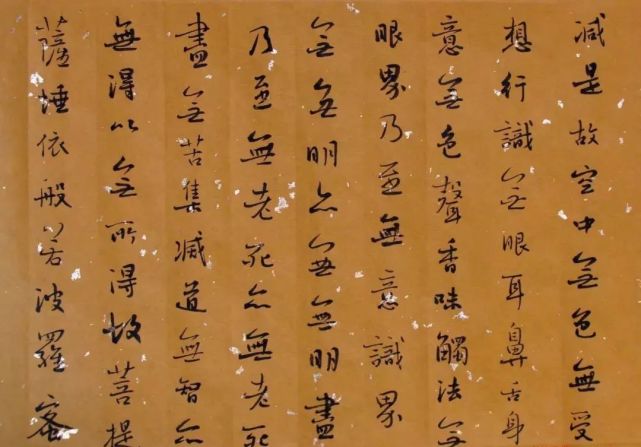 減是故空中無色無受
想行識無眼耳鼻舌身
意無色聲香味觸法無
眼界乃至無意識界
無無明亦無無明盡
乃至無老死亦無老死
盡無苦集滅道無智亦
無得以無所得故菩提
薩埵依般若波羅蜜